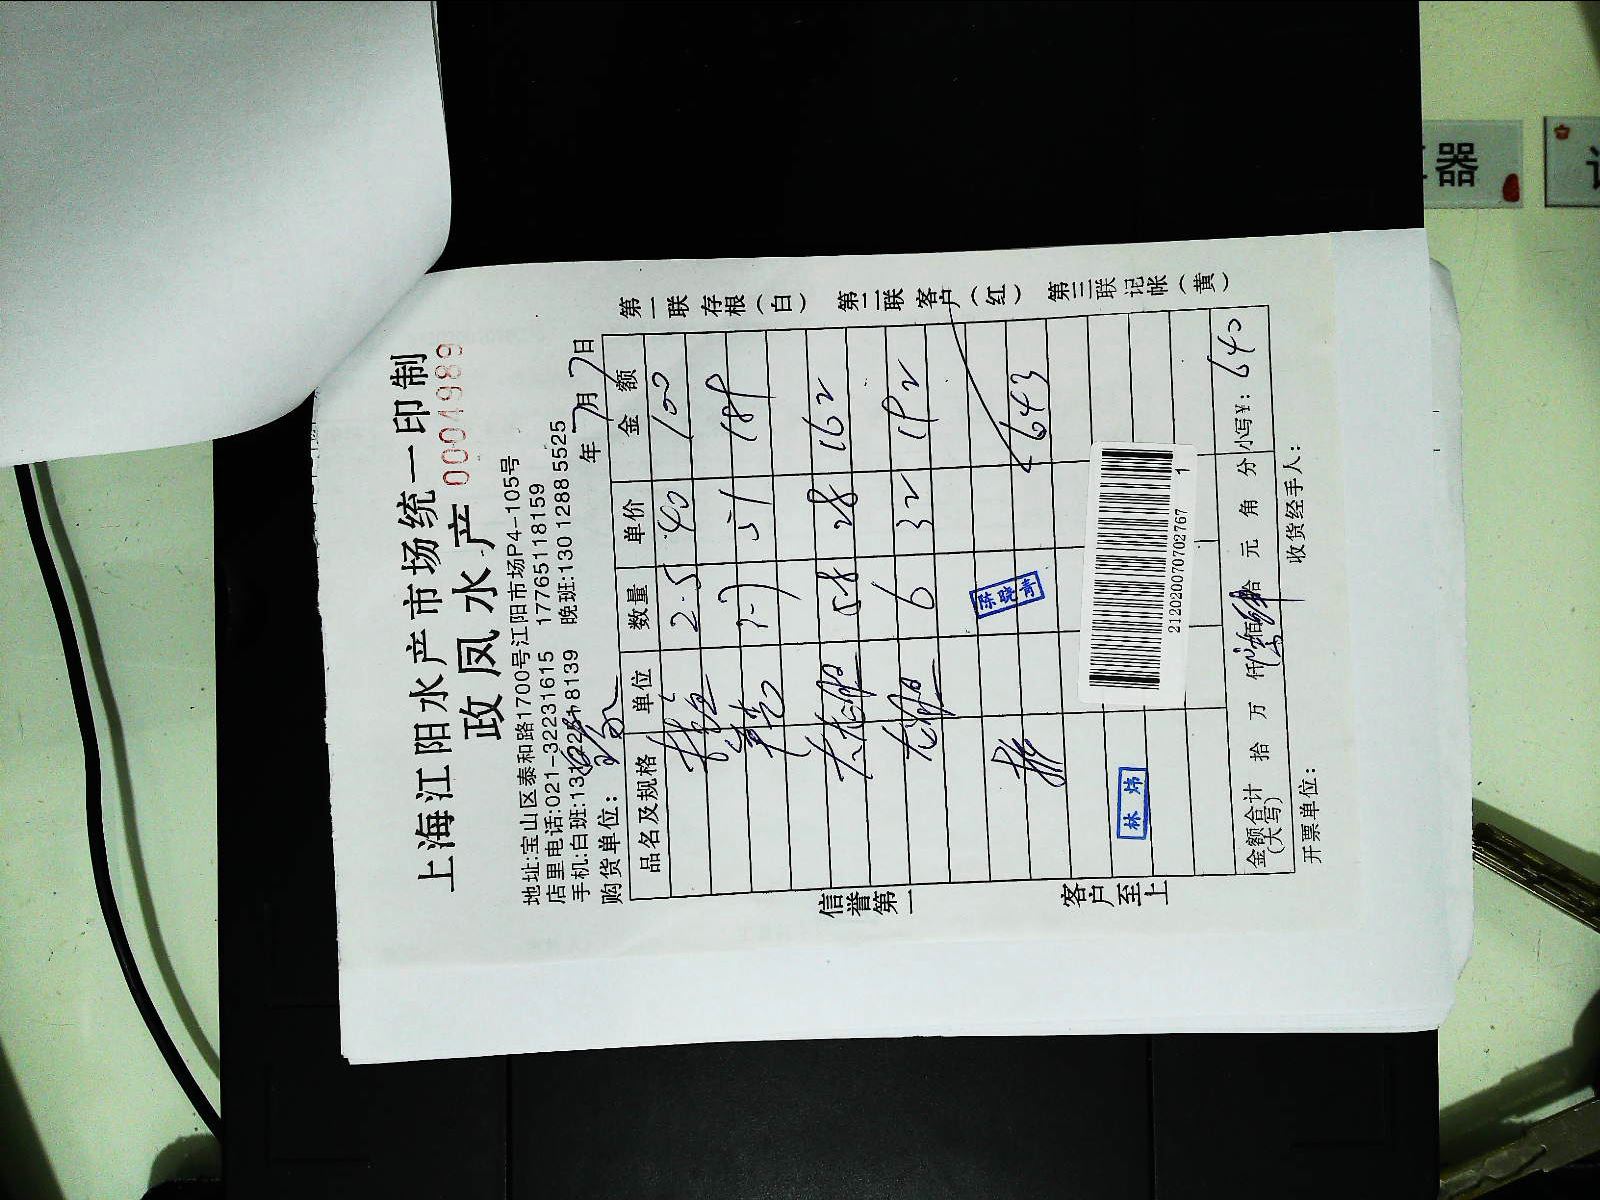 上海江阳水产市场统一印制
政凤水产 0004989
地址:宝山区泰和路1700号江阳市场P4-105号
店里电话:021-32231615 17765118159
手机:白班: 晚班:130 1288 5525
购货单位: 年7月7日
品名及规格 单位 数量 单价 金额
2.5 40 100
28 162
6 32 192
643
陈晓青
林炜
2120200707702767 1
金额合计(大写) 拾 万 仟 佰 拾 元 角 分 小写¥: 640
开票单位: 收货经手人:
第一联存根(白) 第二联客户(红) 第三联记帐(黄)
信誉第一 客户至上
器